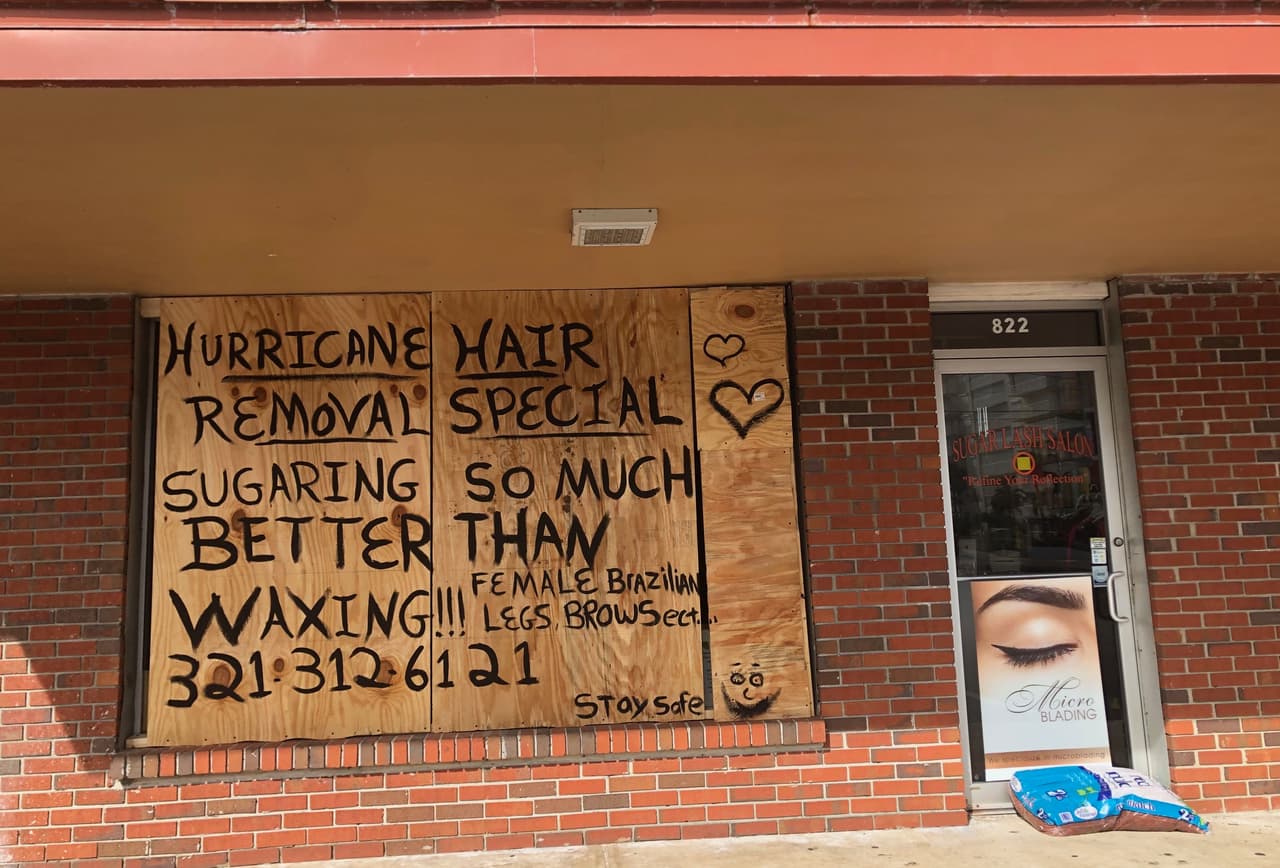 HURRICANE HAIR
REMOVAL SPECIAL
SUGARING SO MUCH
BETTER THAN
WAXING!!! FEMALE Brazilian
LEGS, BROWS ect....
321·312·6121
Stay safe
822
SUGAR LASH SALON
"Refine Your Reflection"
Micro
BLADING